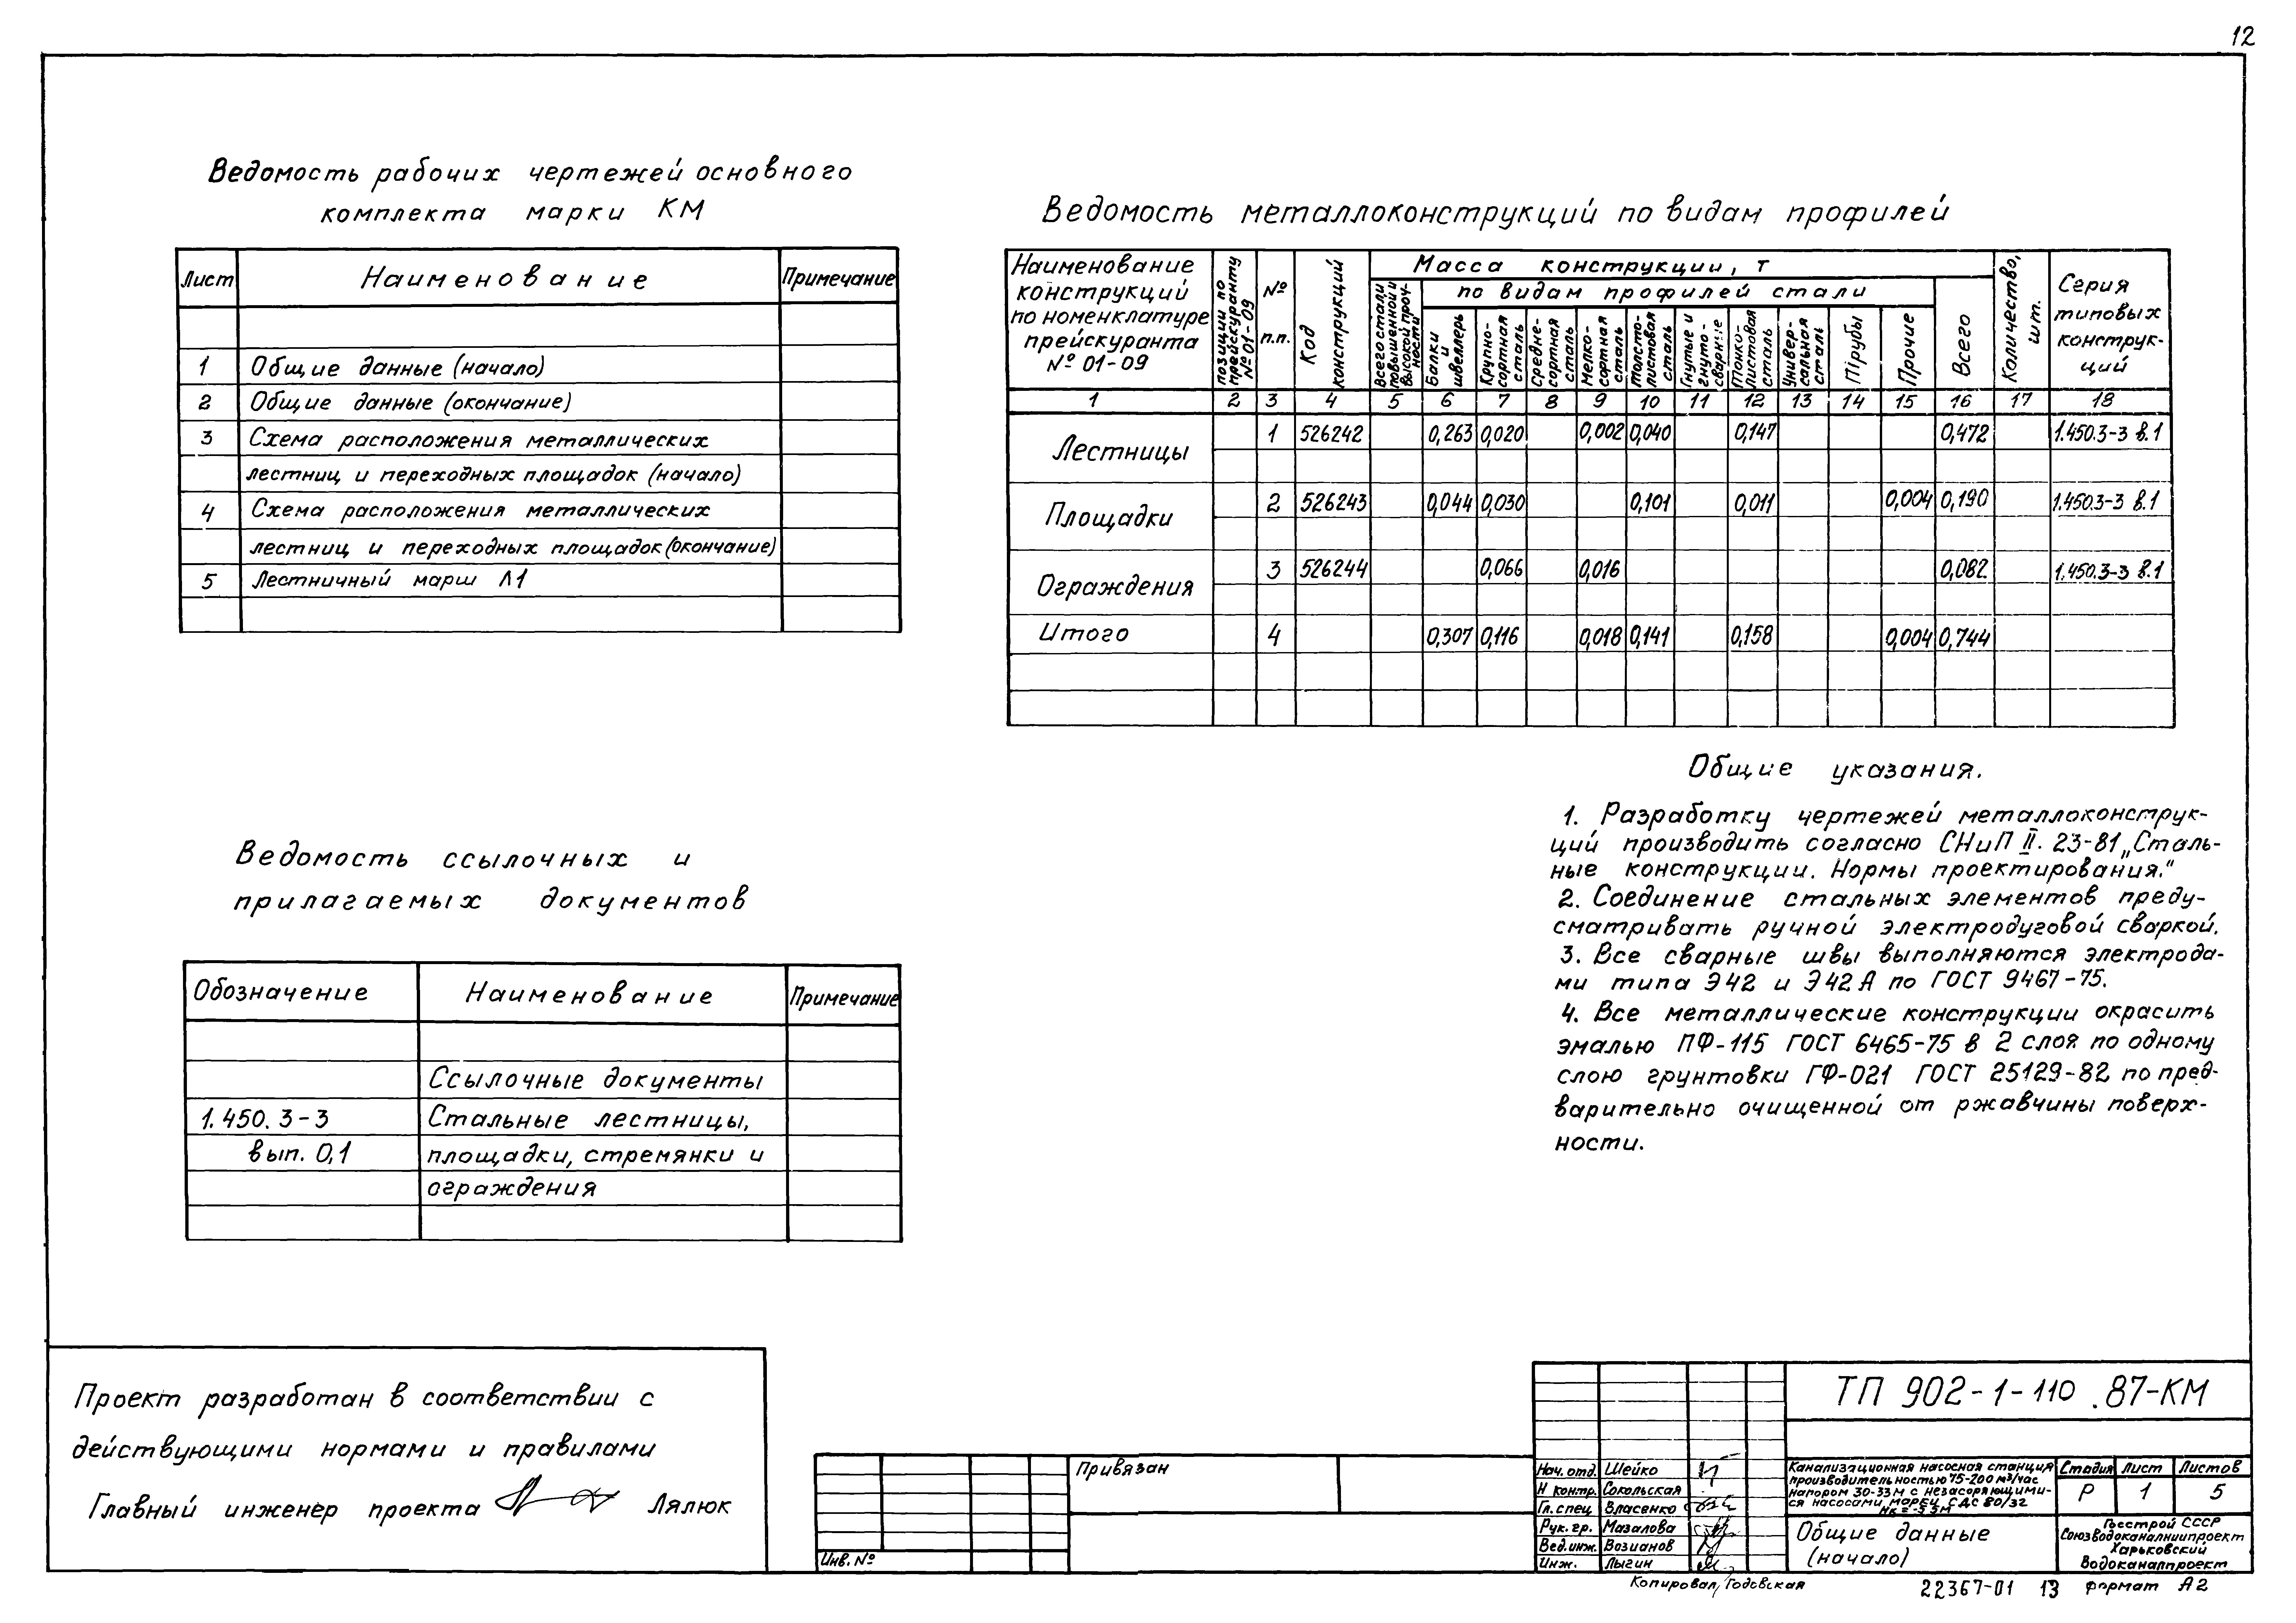 12
Ведомость рабочих чертежей основного
комплекта марки КМ
Лист Наименование Примечание
1 Общие данные (начало)
2 Общие данные (окончание)
3 Схема расположения металлических
лестниц и переходных площадок (начало)
4 Схема расположения металлических
лестниц и переходных площадок (окончание)
5 Лестничный марш Л1
Ведомость металлоконструкций по видам профилей
Наименование
конструкций
по номенклатуре
прейскуранта
№ 01-09
позиции по
прейскуранту
№ 01-09
№
п.п.
Код
конструкций
Масса конструкции, т
Всего стали
повышенной и
высокой проч-
ности
по видам профилей стали
Балки
и
швеллеры
Крупно-
сортная
сталь
Средне-
сортная
сталь
Мелко-
сортная
сталь
Толсто-
листовая
сталь
Гнутые и
гнуто-
сварные
Тонко-
листовая
сталь
Универ-
сальная
сталь
Трубы
Прочие
Всего
Количество,
шт.
Серия
типовых
конструк-
ций
1 2 3 4 5 6 7 8 9 10 11 12 13 14 15 16 17 18
Лестницы 1 526242 0,263 0,020 0,002 0,040 0,147 0,472 1.450.3-3 в.1
Площадки 2 526243 0,044 0,030 0,101 0,011 0,004 0,190 1.450.3-3 в.1
Ограждения 3 526244 0,066 0,016 0,082 1.450.3-3 в.1
Итого 4 0,307 0,116 0,018 0,141 0,158 0,004 0,744
Общие указания.
1. Разработку чертежей металлоконструк-
ций производить согласно СНиП II. 23-81 „Сталь-
ные конструкции. Нормы проектирования."
2. Соединение стальных элементов преду-
сматривать ручной электродуговой сваркой.
3. Все сварные швы выполняются электрода-
ми типа Э42 и Э42А по ГОСТ 9467-75.
4. Все металлические конструкции окрасить
эмалью ПФ-115 ГОСТ 6465-75 в 2 слоя по одному
слою грунтовки ГФ-021 ГОСТ 25129-82 по пред-
варительно очищенной от ржавчины поверх-
ности.
Ведомость ссылочных и
прилагаемых документов
Обозначение Наименование Примечание
Ссылочные документы
1.450.3-3 Стальные лестницы,
вып. 0,1 площадки, стремянки и
ограждения
Проект разработан в соответствии с
действующими нормами и правилами
Главный инженер проекта Лялюк
Привязан
Инв. №
Нач. отд. Шейко
Н контр. Сокольская
Гл. спец Власенко
Рук. гр. Мазалова
Вед.инж. Возианов
Инж. Лыгин
ТП 902-1-110.87-КМ
Канализационная насосная станция
производительностью 75-200 м³/час
напором 30-33м с незасоряющими-
ся насосами марки СДС 80/32
Нк=-5,5м
Стадия Лист Листов
Р 1 5
Общие данные
(начало)
Госстрой СССР
Союзводоканалниипроект
Харьковский
Водоканалпроект
Копировал Годовская
22367-01 13 формат А2